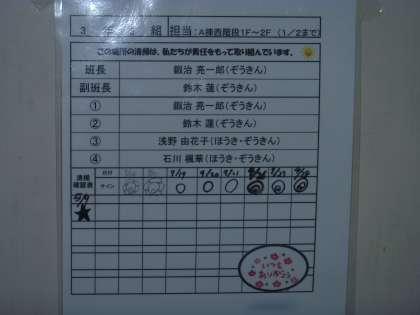 3 年 組 担当：A棟西階段1F～2F（1/2まで）
この場所の清掃は、私たちが責任をもって取り組んでいます。
班長 鍛治 亮一郎（ぞうきん）
副班長 鈴木 蓮（ぞうきん）
① 鍛治 亮一郎（ぞうきん）
② 鈴木 蓮（ぞうきん）
③ 浅野 由花子（ほうき・ぞうきん）
④ 石川 楓華（ほうき・ぞうきん）
清掃確認表 日付 9/19 9/20
サイン
5/9
いつも
ありがとう